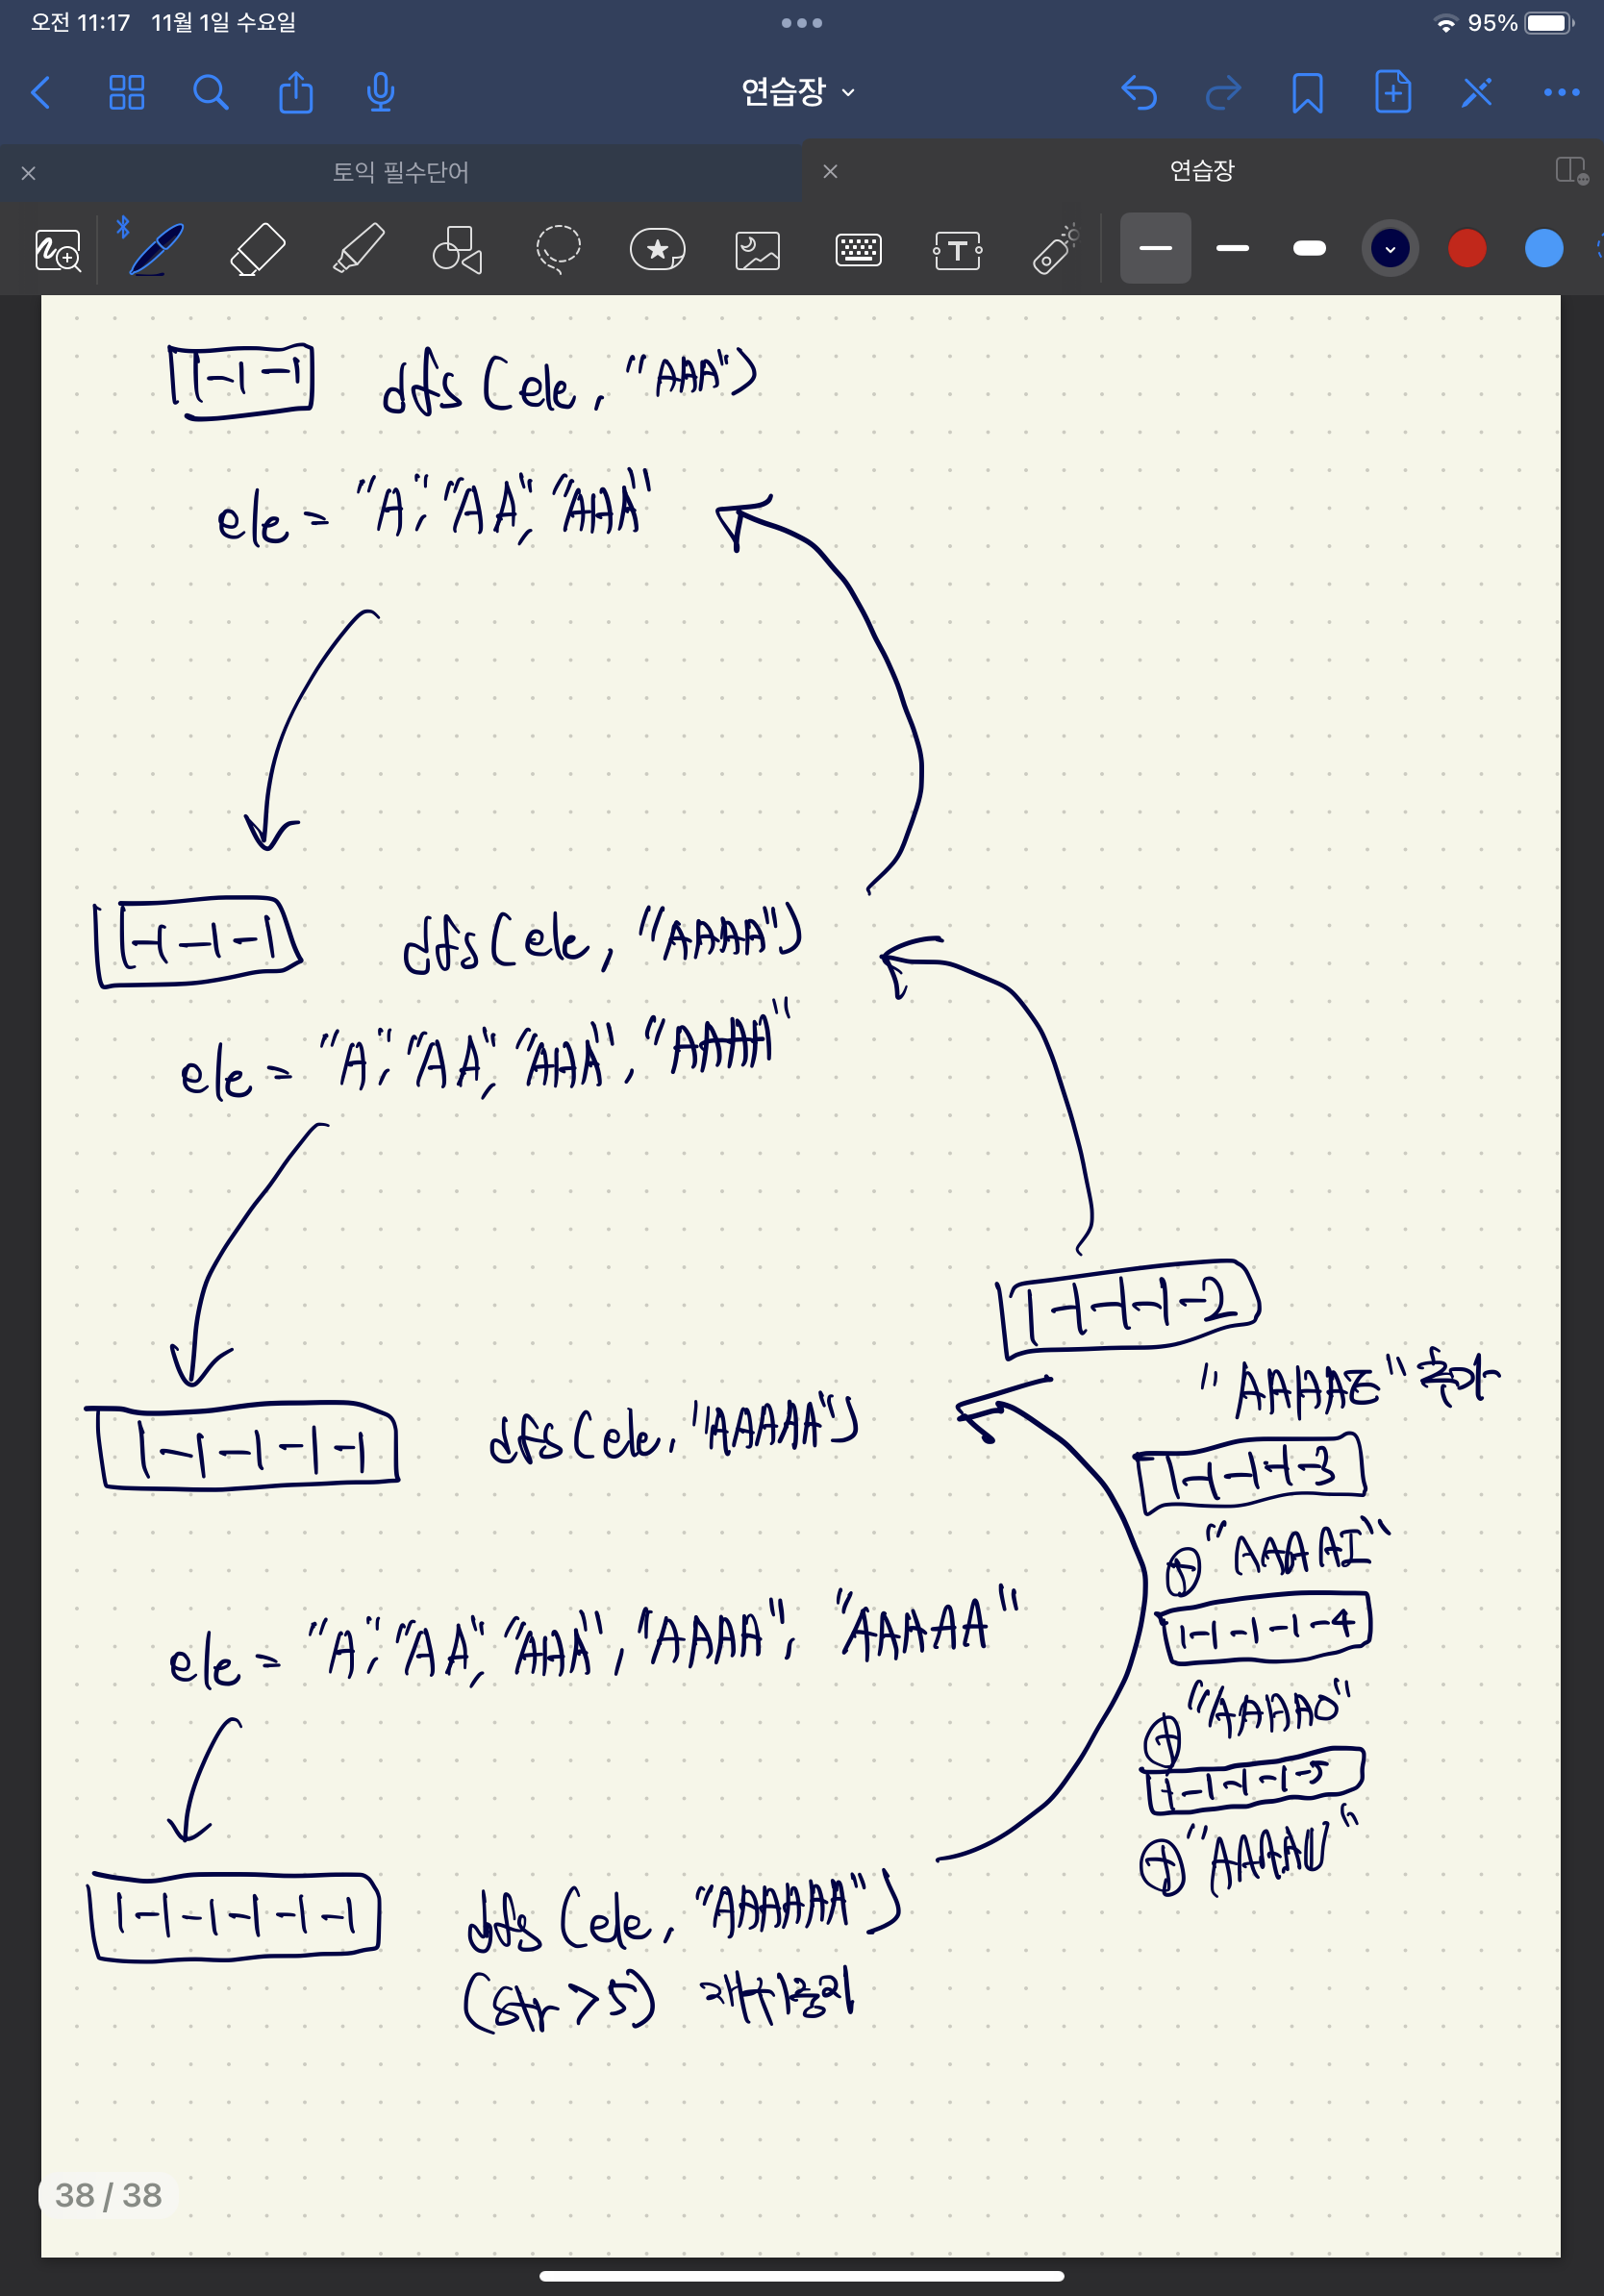 오전 11:17 11월 1일 수요일
95%
연습장
토익 필수단어
연습장
1-1-1 dfs(ele, "AAA")
ele = "A", "AA", "AAA"
1-1-1-1 dfs(ele, "AAAA")
ele = "A", "AA", "AAA", "AAAA"
1-1-1-1-2
"AAAAE" 추가
1-1-1-1-1 dfs(ele, "AAAAA")
1-1-1-1-3
+ "AAAAI"
ele = "A", "AA", "AAA", "AAAA", "AAAAA"
1-1-1-1-4
+ "AAAAO"
1-1-1-1-5
+ "AAAAU"
1-1-1-1-1-1 dfs(ele, "AAAAAA")
(str > 5)
38 / 38